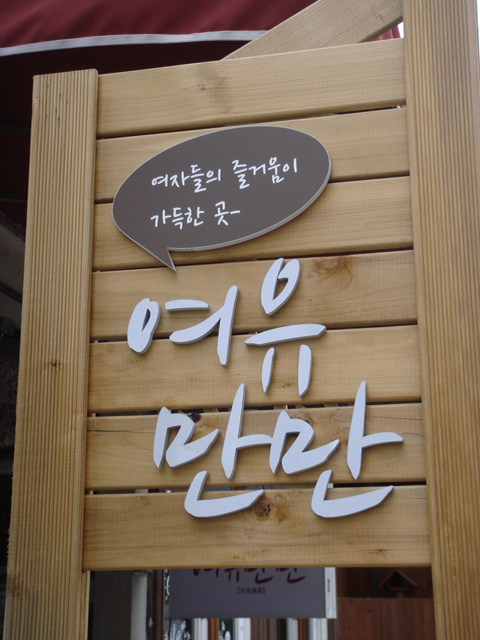 여자들의 즐거움이
가득한 곳-
여유
만만
여유만만